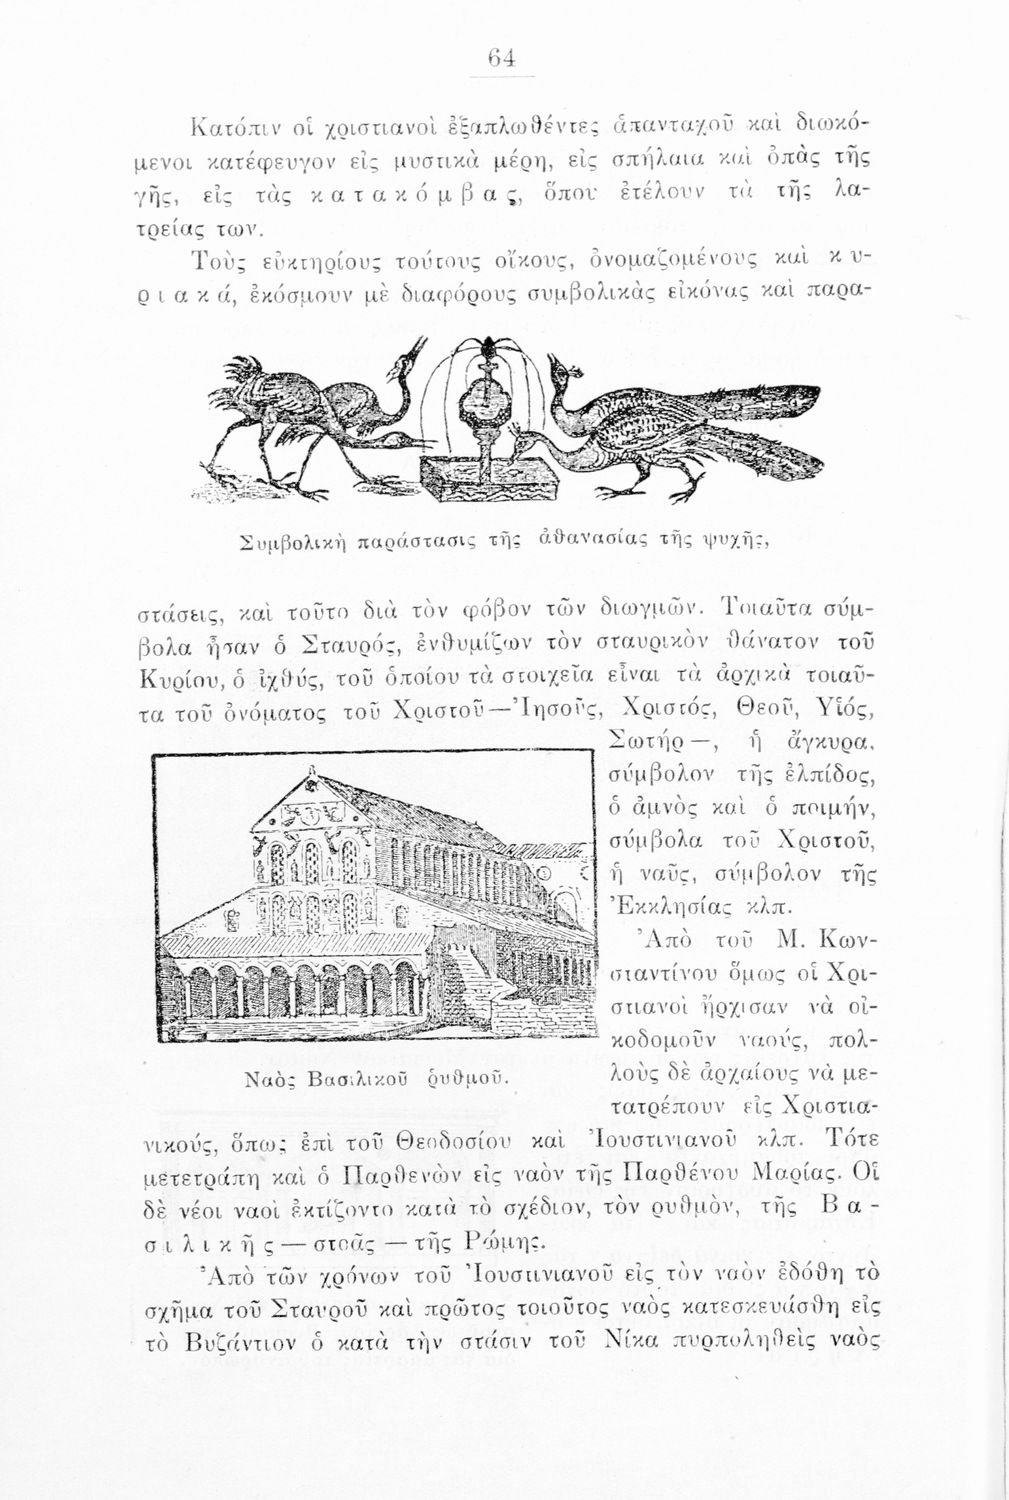 64
Κατόπιν οἱ χριστιανοὶ ἐξαπλωθέντες ἁπανταχοῦ καὶ διωκό-
μενοι κατέφευγον εἰς μυστικὰ μέρη, εἰς σπήλαια καὶ ὀπὰς τῆς
γῆς, εἰς τὰς κ α τ α κ ό μ β α ς, ὅπου ἐτέλουν τὰ τῆς λα-
τρείας των.
Τοὺς εὐκτηρίους τούτους οἴκους, ὀνομαζομένους καὶ κ υ-
ρ ι α κ ά, ἐκόσμουν μὲ διαφόρους συμβολικὰς εἰκόνας καὶ παρα-
Συμβολικὴ παράστασις τῆς ἀθανασίας τῆς ψυχῆς,
στάσεις, καὶ τοῦτο διὰ τὸν φόβον τῶν διωγμῶν. Τοιαῦτα σύμ-
βολα ἦσαν ὁ Σταυρός, ἐνθυμίζων τὸν σταυρικὸν θάνατον τοῦ
Κυρίου, ὁ ἰχθύς, τοῦ ὁποίου τὰ στοιχεῖα εἶναι τὰ ἀρχικὰ τοιαῦ-
τα τοῦ ὀνόματος τοῦ Χριστοῦ—Ἰησοῦς, Χριστός, Θεοῦ, Υἱός,
Σωτήρ —, ἡ ἄγκυρα,
σύμβολον τῆς ἐλπίδος,
ὁ ἀμνὸς καὶ ὁ ποιμήν,
σύμβολα τοῦ Χριστοῦ,
ἡ ναῦς, σύμβολον τῆς
Ἐκκλησίας κλπ.
Ἀπὸ τοῦ Μ. Κων-
σταντίνου ὅμως οἱ Χρι-
στιανοὶ ἤρχισαν νὰ οἰ-
κοδομοῦν ναούς, πολ-
λοὺς δὲ ἀρχαίους νὰ με-
τατρέπουν εἰς Χριστια-
Ναὸς Βασιλικοῦ ῥυθμοῦ.
νικούς, ὅπως ἐπὶ τοῦ Θεοδοσίου καὶ Ἰουστινιανοῦ κλπ. Τότε
μετετράπη καὶ ὁ Παρθενὼν εἰς ναὸν τῆς Παρθένου Μαρίας. Οἱ
δὲ νέοι ναοὶ ἐκτίζοντο κατὰ τὸ σχέδιον, τὸν ρυθμὸν, τῆς Β α -
σ ι λ ι κ ῆ ς — στοᾶς — τῆς Ρώμης.
Ἀπὸ τῶν χρόνων τοῦ Ἰουστινιανοῦ εἰς τὸν ναὸν ἐδόθη τὸ
σχῆμα τοῦ Σταυροῦ καὶ πρῶτος τοιοῦτος ναὸς κατεσκευάσθη εἰς
τὸ Βυζάντιον ὁ κατὰ τὴν στάσιν τοῦ Νίκα πυρποληθεὶς ναὸς